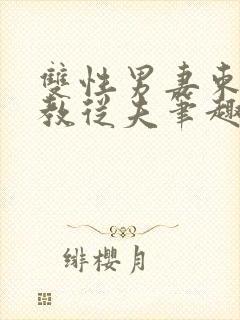 雙性男妻束
教從夫筆趣
緋櫻月